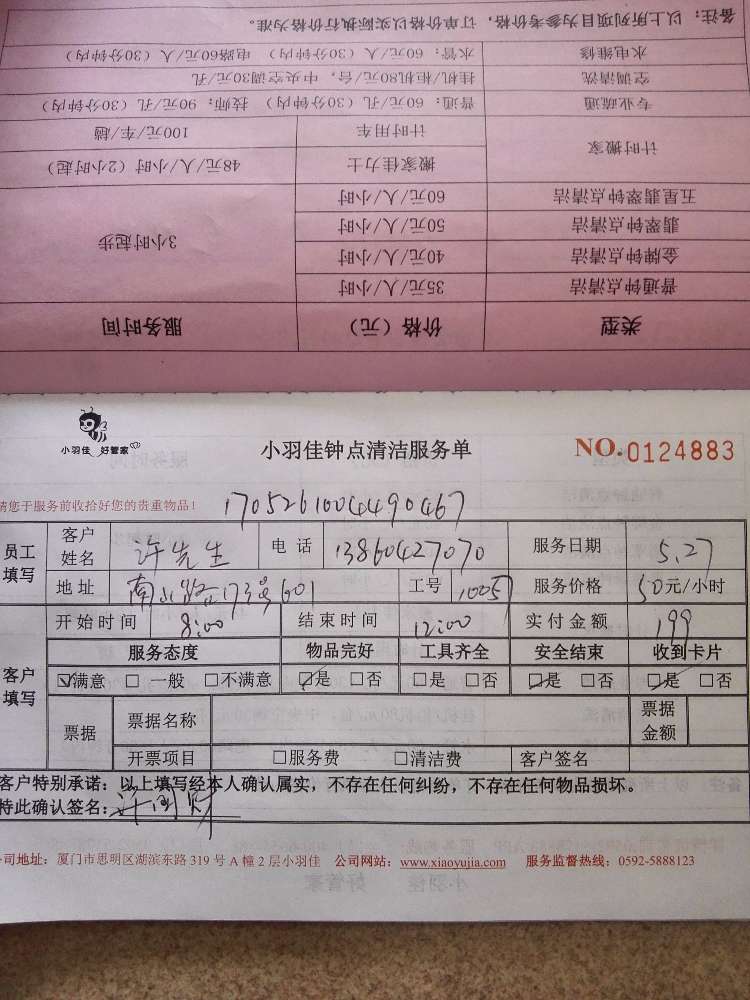 备注：以上所列项目为参考价格，订单价格以实际执行价格为准。
水电维修 水管：60元/人（30分钟内） 电路60元/人（30分钟内）
空调清洗 挂机/柜机80元/台，中央空调30元/孔
专业疏通 普通：60元/孔（30分钟内） 技师：90元/孔（30分钟内）
计时搬家 计时用车 100元/车/趟
搬家佳力士 48元/人/小时（2小时起）
五星翡翠钟点清洁 60元/人/小时 3小时起步
翡翠钟点清洁 50元/人/小时
金牌钟点清洁 40元/人/小时
普通钟点清洁 35元/人/小时
类型 价格（元） 服务时间
小羽佳 好管家
小羽佳钟点清洁服务单
NO.0124883
请您于服务前收拾好您的贵重物品！
1705261004490467
员工填写 客户姓名 许先生 电话 13860427070 服务日期 5.27
地址 南山路173号601 工号 1005 服务价格 50元/小时
客户填写 开始时间 8:00 结束时间 12:00 实付金额 199
服务态度 物品完好 工具齐全 安全结束 收到卡片
☑满意 □一般 □不满意 ☑是 □否 □是 □否 ☑是 □否 ☑是 □否
票据 票据名称 票据金额
开票项目 □服务费 □清洁费 客户签名
客户特别承诺：以上填写经本人确认属实，不存在任何纠纷，不存在任何物品损坏。
特此确认签名：
公司地址：厦门市思明区湖滨东路319号A幢2层小羽佳 公司网站：www.xiaoyujia.com 服务监督热线：0592-5888123